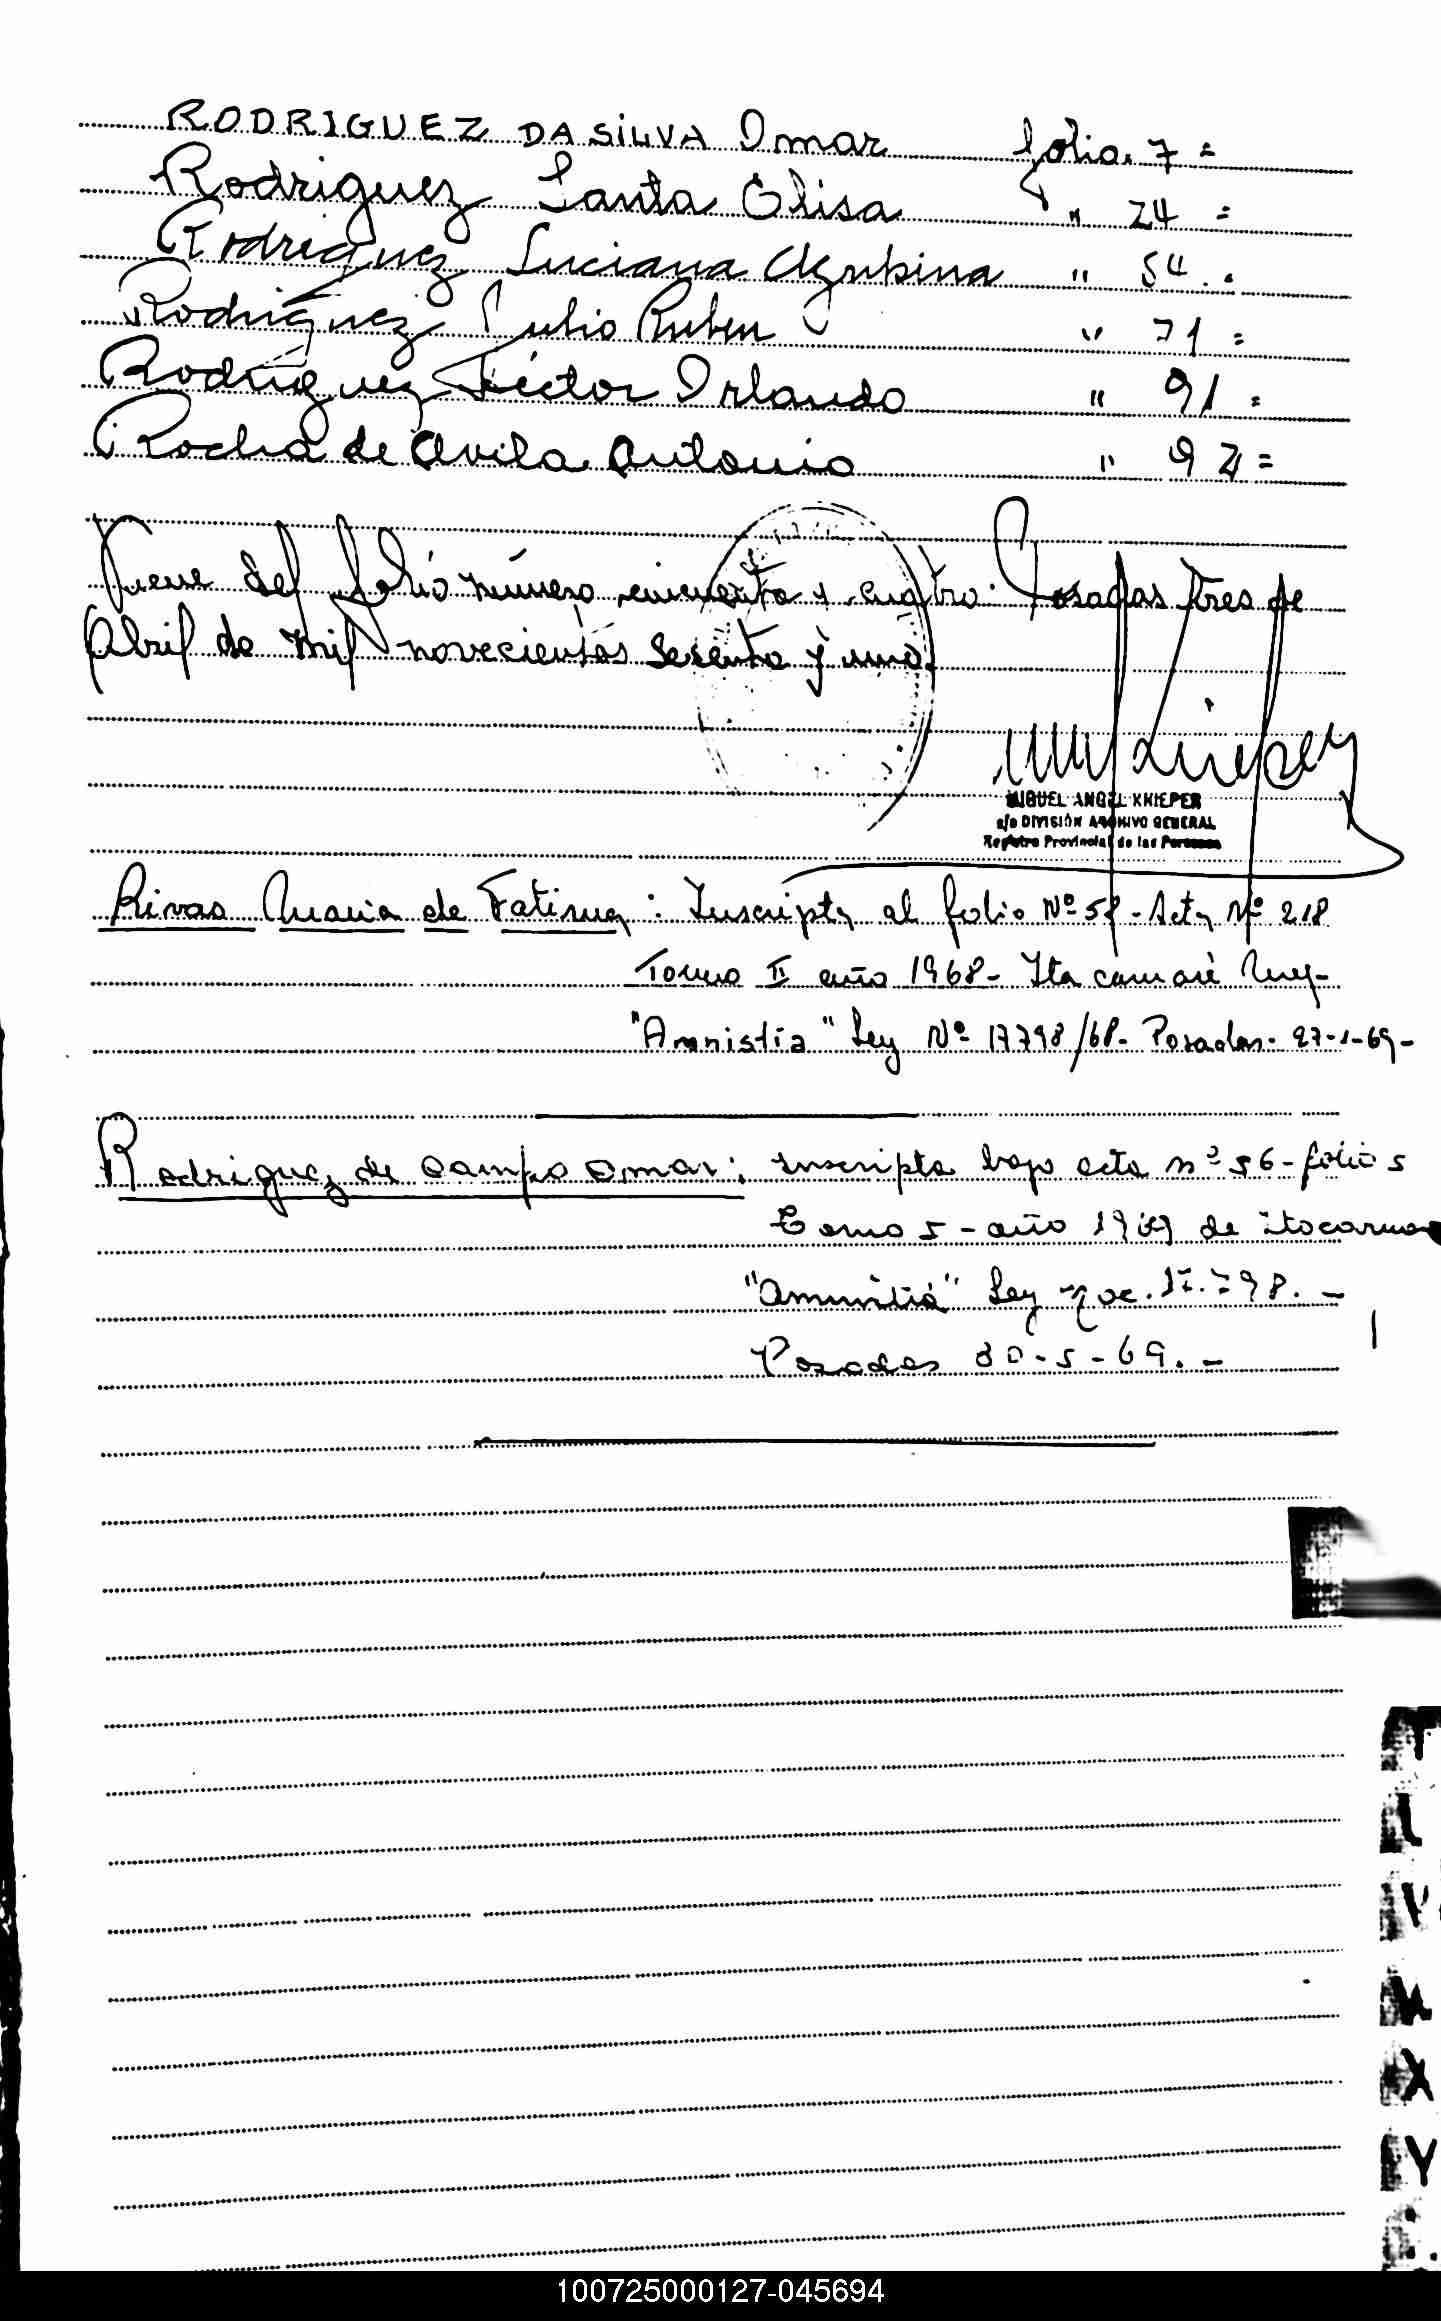 RODRIGUEZ DA SILVA Omar folio. 7 =
Rodriguez Santa Elisa " 24 =
Rodriguez Luciana Agripina " 54 . =
Rodriguez Julio Ruben " 71 =
Rodríguez Héctor Orlando " 91 =
Rocha de Avila Antonio " 92 =
Viene del folio número cincuenta y cuatro. Posadas tres de
Abril de mil novecientos sesenta y uno.
MIGUEL ANGEL KNIEPER
a/c DIVISIÓN ARCHIVO GENERAL
Registro Provincial de las Personas
Rivas Maria de Fatima : Inscripta al folio Nº 58 - Acta Nº 218
Tomo II año 1968 - Itacaruaré
"Amnistia" Ley Nº 17798/68 - Posadas - 27-1-69 -
Rodriguez de Campo Omar: inscripta bajo acta nº 56 - folio 5
Tomo 5 - año 1969 de
"Amnistiá" Ley 17.798. -
Posadas 30-5-69. -
V
W
X
Y
100725000127-045694